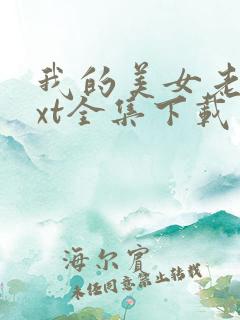 我的美女老
xt全集下载
海尔宾
未经同意禁止转载